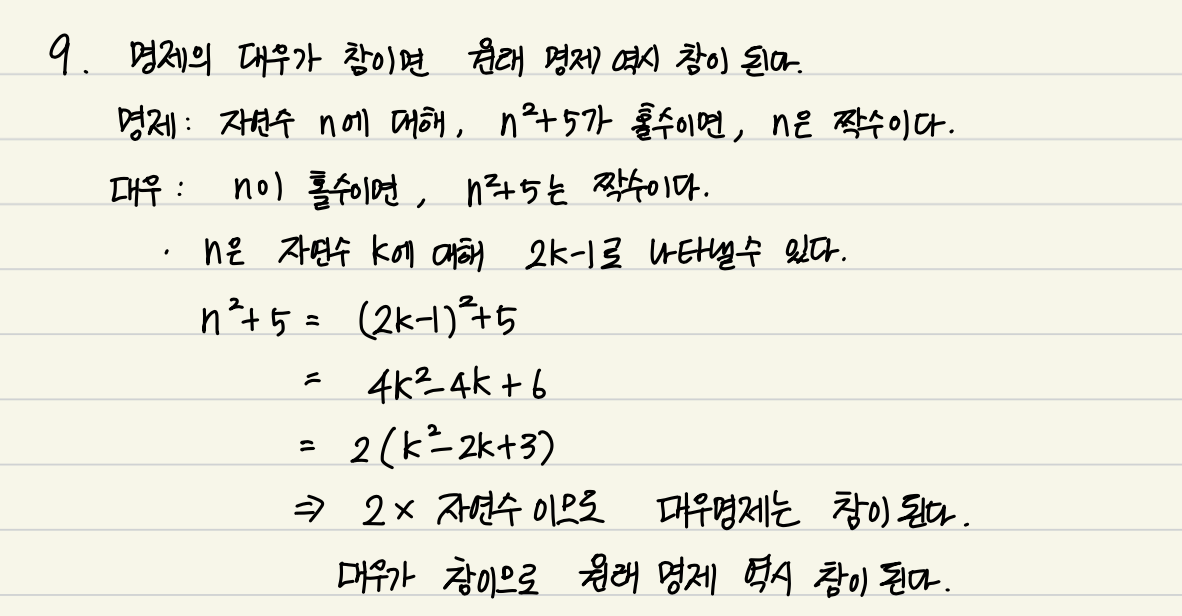 9. 명제의 대우가 참이면 원래 명제 역시 참이 된다.
명제: 자연수 n에 대해, n²+5가 홀수이면, n은 짝수이다.
대우: n이 홀수이면, n²+5는 짝수이다.
· n은 자연수 k에 대해 2k-1로 나타낼수 있다.
n²+5 = (2k-1)²+5
= 4k²-4k+6
= 2(k²-2k+3)
⇒ 2× 자연수 이므로 대우명제는 참이 된다.
대우가 참이므로 원래 명제 역시 참이 된다.